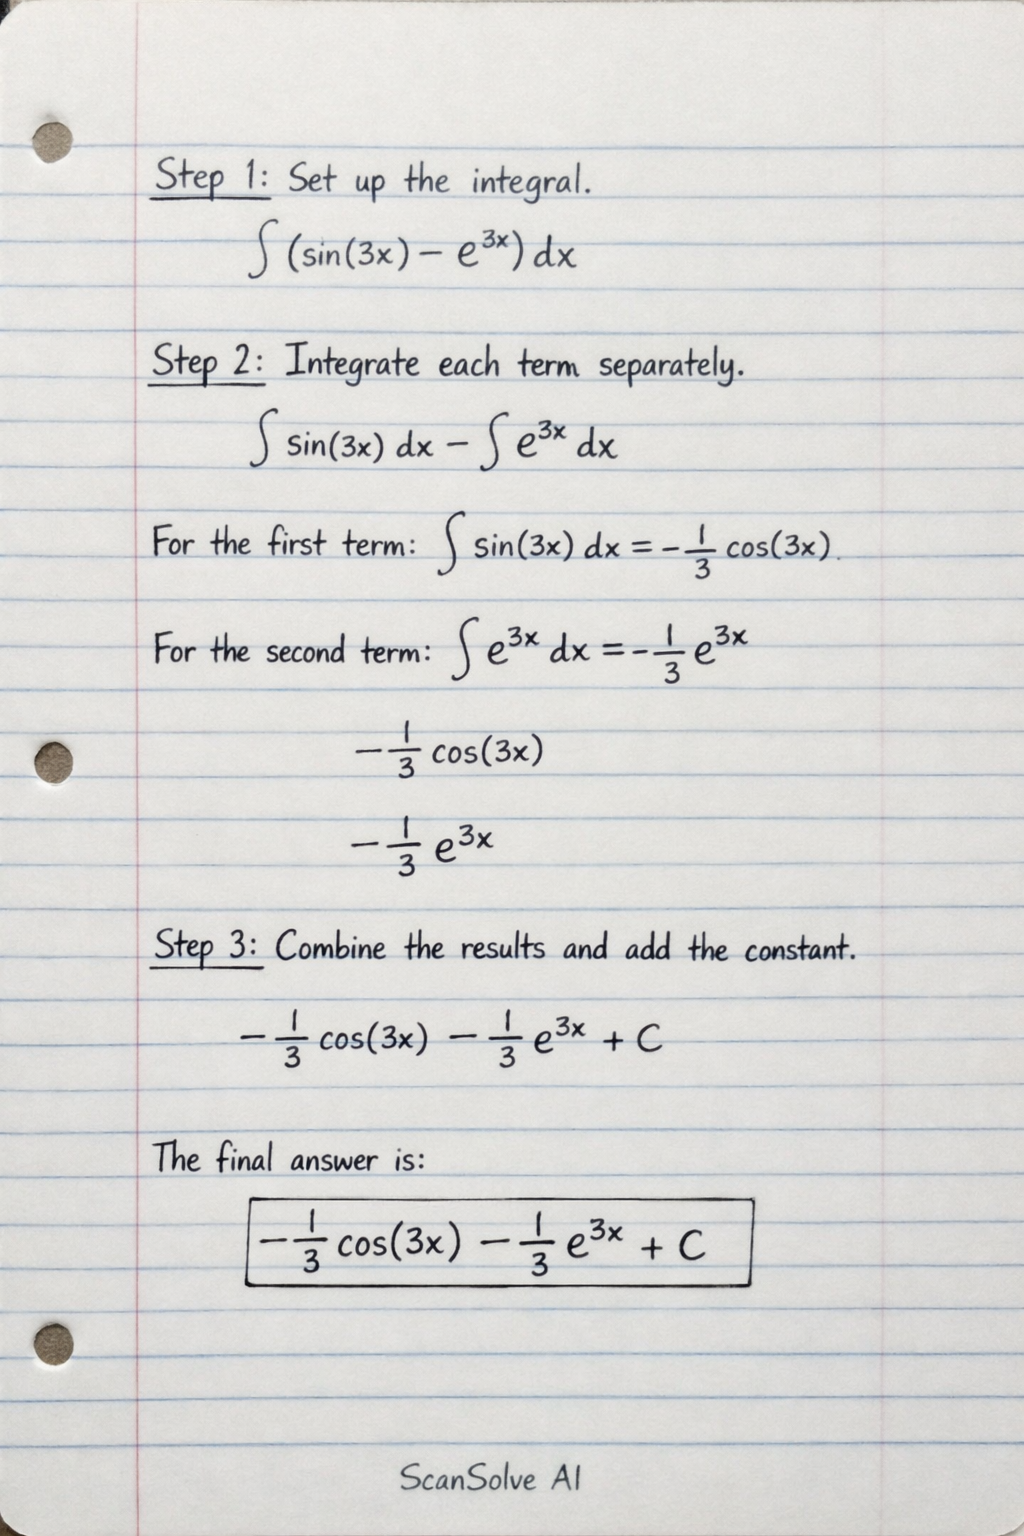 Step 1: Set up the integral.
∫ (sin(3x) − e^{3x}) dx
Step 2: Integrate each term separately.
∫ sin(3x) dx − ∫ e^{3x} dx
For the first term: ∫ sin(3x) dx = −\frac{1}{3} cos(3x).
For the second term: ∫ e^{3x} dx = −\frac{1}{3} e^{3x}
−\frac{1}{3} cos(3x)
−\frac{1}{3} e^{3x}
Step 3: Combine the results and add the constant.
−\frac{1}{3} cos(3x) − \frac{1}{3} e^{3x} + C
The final answer is:
−\frac{1}{3} cos(3x) − \frac{1}{3} e^{3x} + C
ScanSolve AI